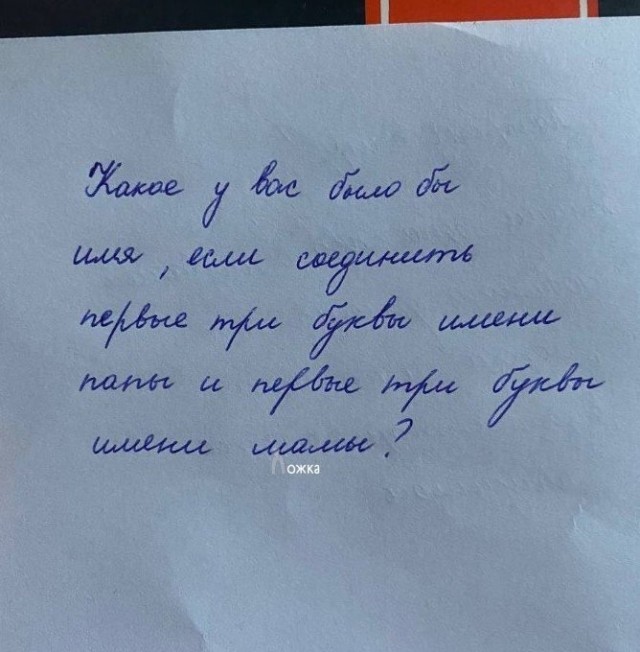 Какое у вас было бы
имя, если соединить
первые три буквы имени
папы и первые три буквы
имени мамы?
Ложка